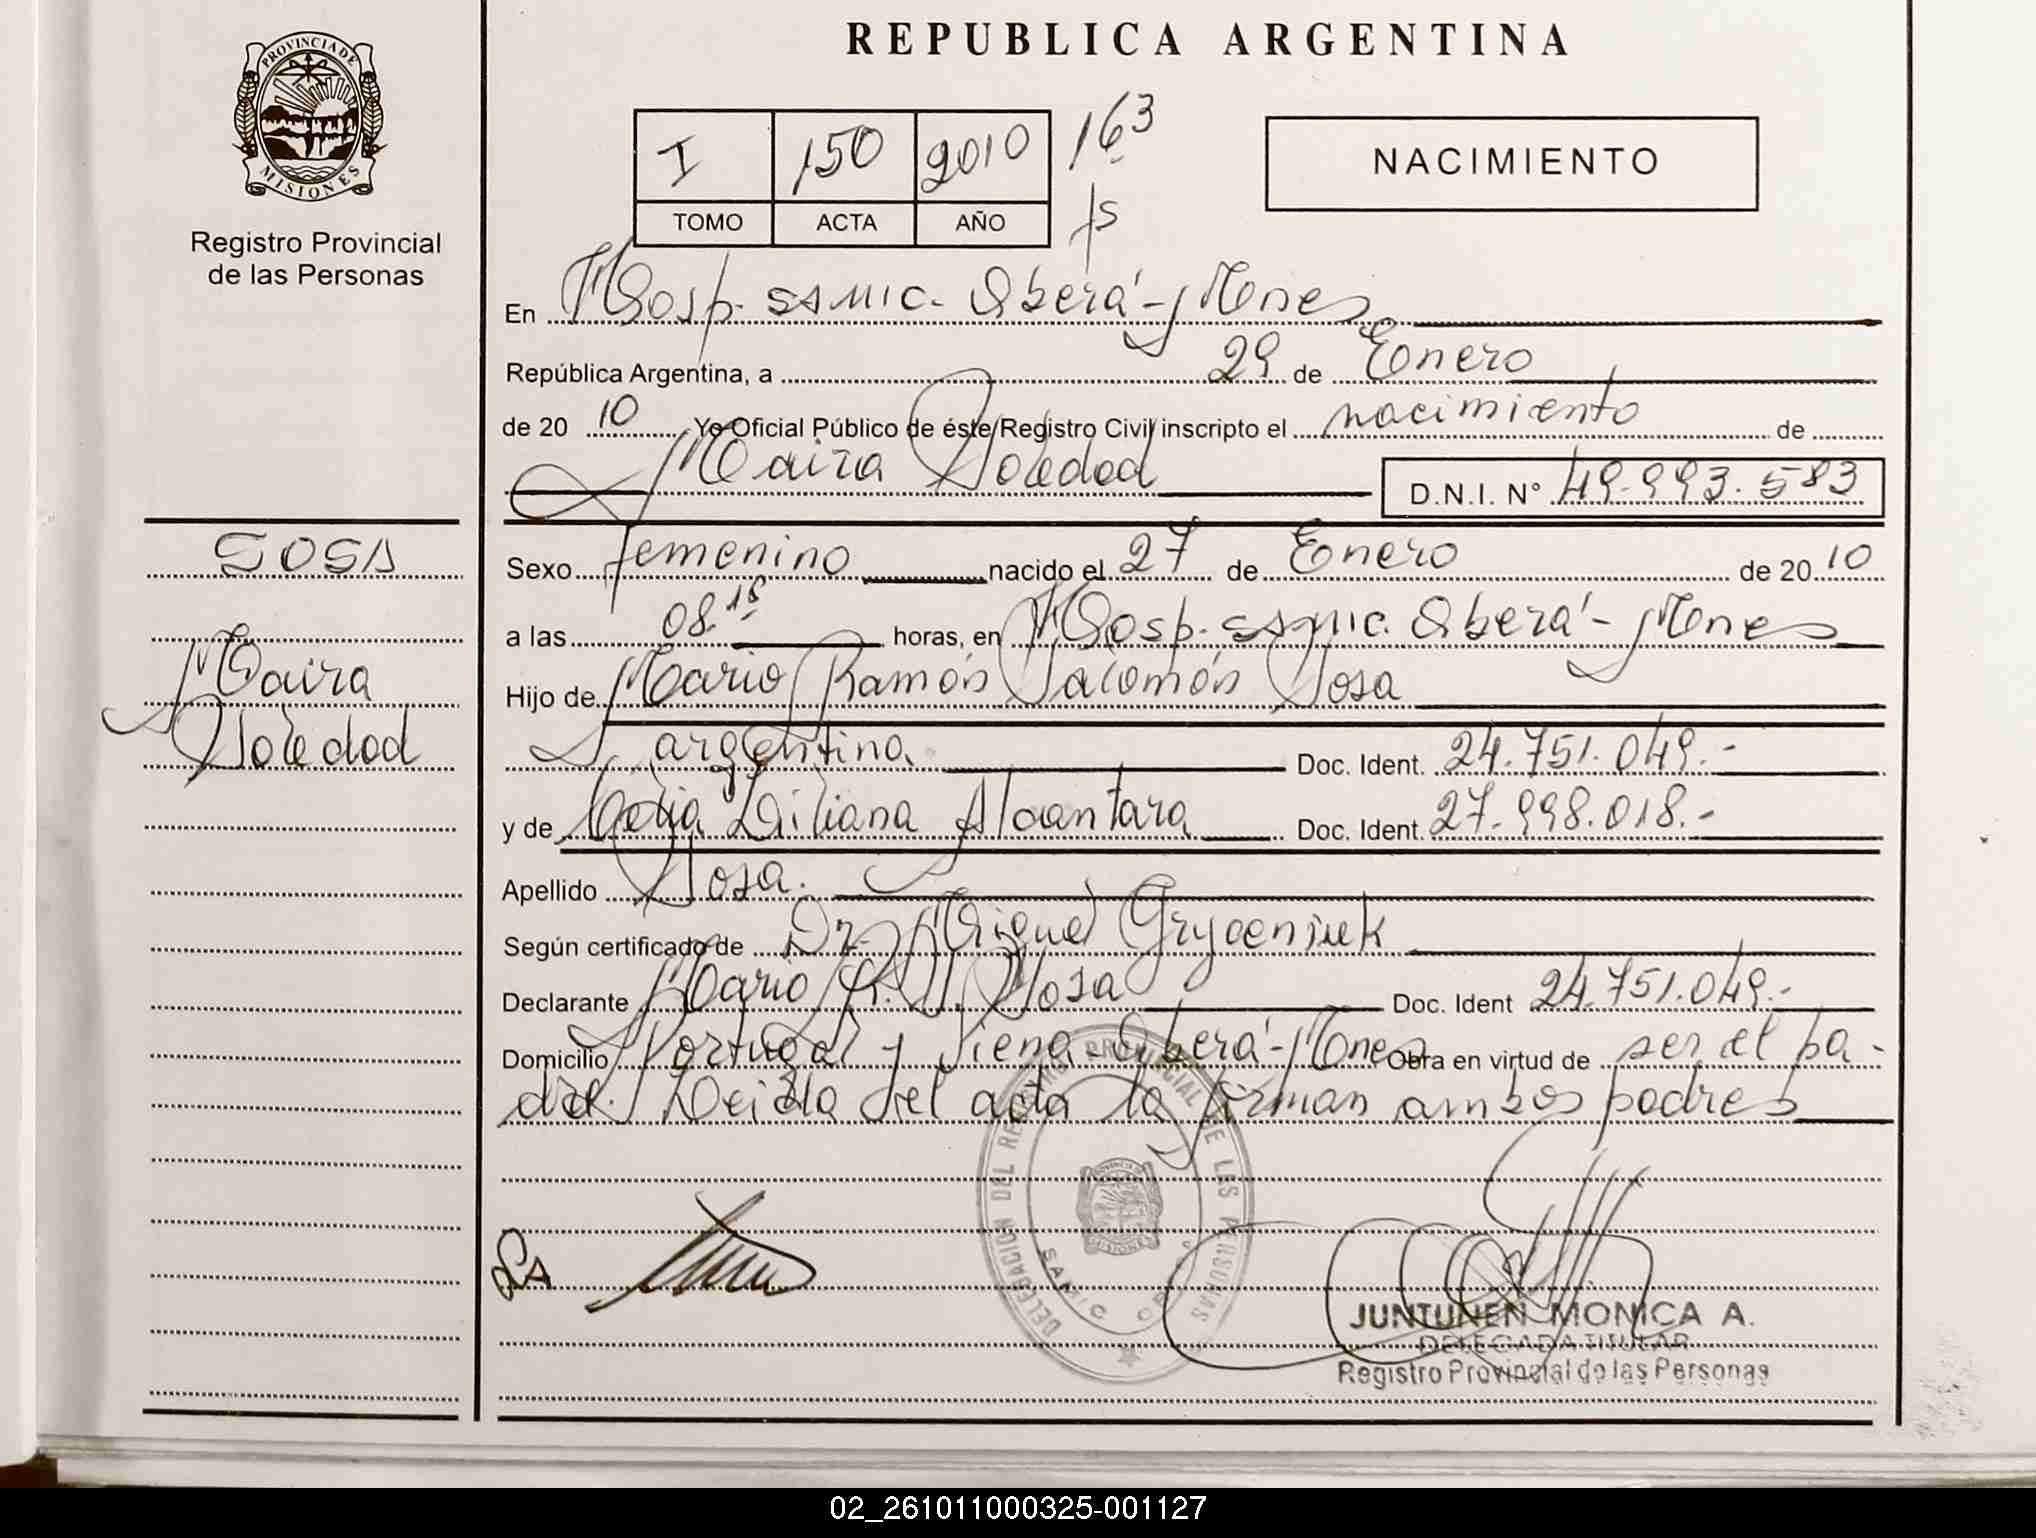 REPUBLICA ARGENTINA
PROVINCIA DE
MISIONES
Registro Provincial
de las Personas
I 150 2010 163
TOMO ACTA AÑO fs
NACIMIENTO
En Hosp. SAMIC. Oberá - Mnes
República Argentina, a 29 de Enero
de 20 10 Yo Oficial Público de éste Registro Civil inscripto el nacimiento de
Maira Soledad D.N.I. Nº 49.993.583
SOSA
Maira
Soledad
Sexo femenino nacido el 27 de Enero de 20 10
a las 08.15 horas, en Hosp. SAMIC. Oberá - Mnes
Hijo de Mario Ramón Salomón Sosa
argentina Doc. Ident. 24.751.049.-
y de Liliana Alcantara Doc. Ident. 27.998.018.-
Apellido Sosa.
Según certificado de Dr. Miguel
Declarante Mario R. S. Sosa Doc. Ident 24.751.049.-
Domicilio Portugal y Viena - Oberá - Mnes Obra en virtud de ser el pa-
dre. Leida del acta la firman ambos padres
DELEGACION DEL REGISTRO PROVINCIAL DE LAS PERSONAS
SAMIC
MISIONES
JUNTUNEN MONICA A.
DELEGADA TITULAR
Registro Provincial de las Personas
02_261011000325-001127